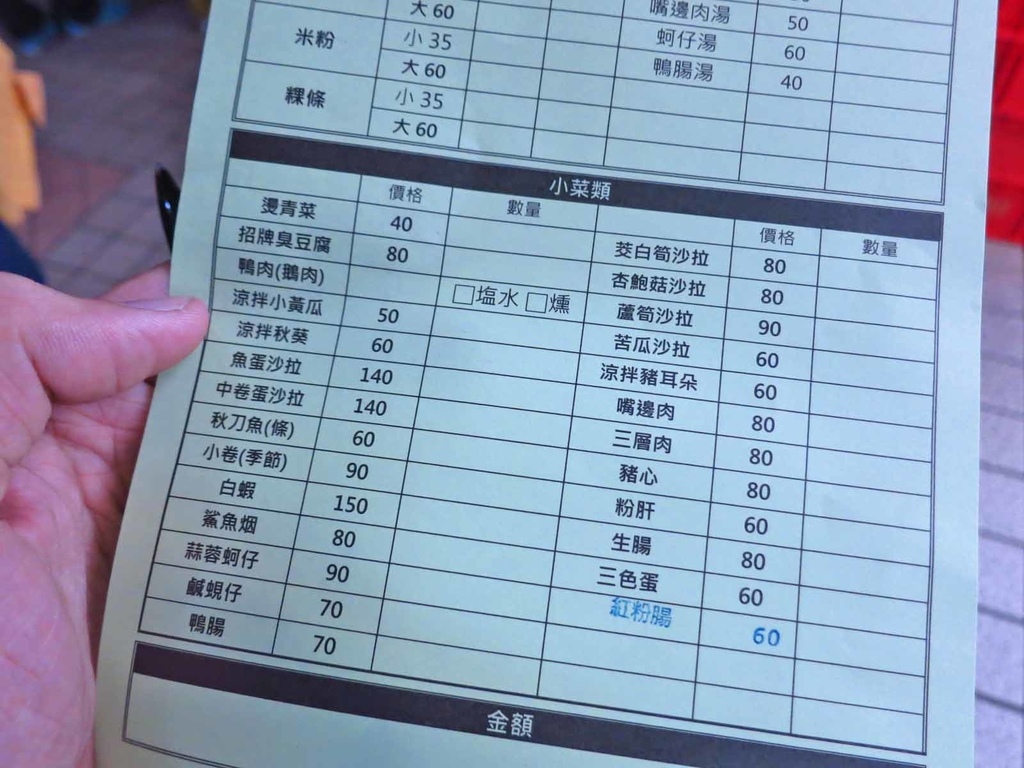 大 60 嘴邊肉湯 50
米粉 小 35 蚵仔湯 60
大 60 鴨腸湯 40
粿條 小 35
大 60
小菜類
價格 數量 價格 數量
燙青菜 40 茭白筍沙拉 80
招牌臭豆腐 80 杏鮑菇沙拉 80
鴨肉(鵝肉) □塩水 □燻 蘆筍沙拉 90
涼拌小黃瓜 50 苦瓜沙拉 60
涼拌秋葵 60 涼拌豬耳朵 60
魚蛋沙拉 140 嘴邊肉 80
中卷蛋沙拉 140 三層肉 80
秋刀魚(條) 60 豬心 80
小卷(季節) 90 粉肝 60
白蝦 150 生腸 80
鯊魚烟 80 三色蛋 60
蒜蓉蚵仔 90 紅粉腸 60
鹹蜆仔 70
鴨腸 70
金額